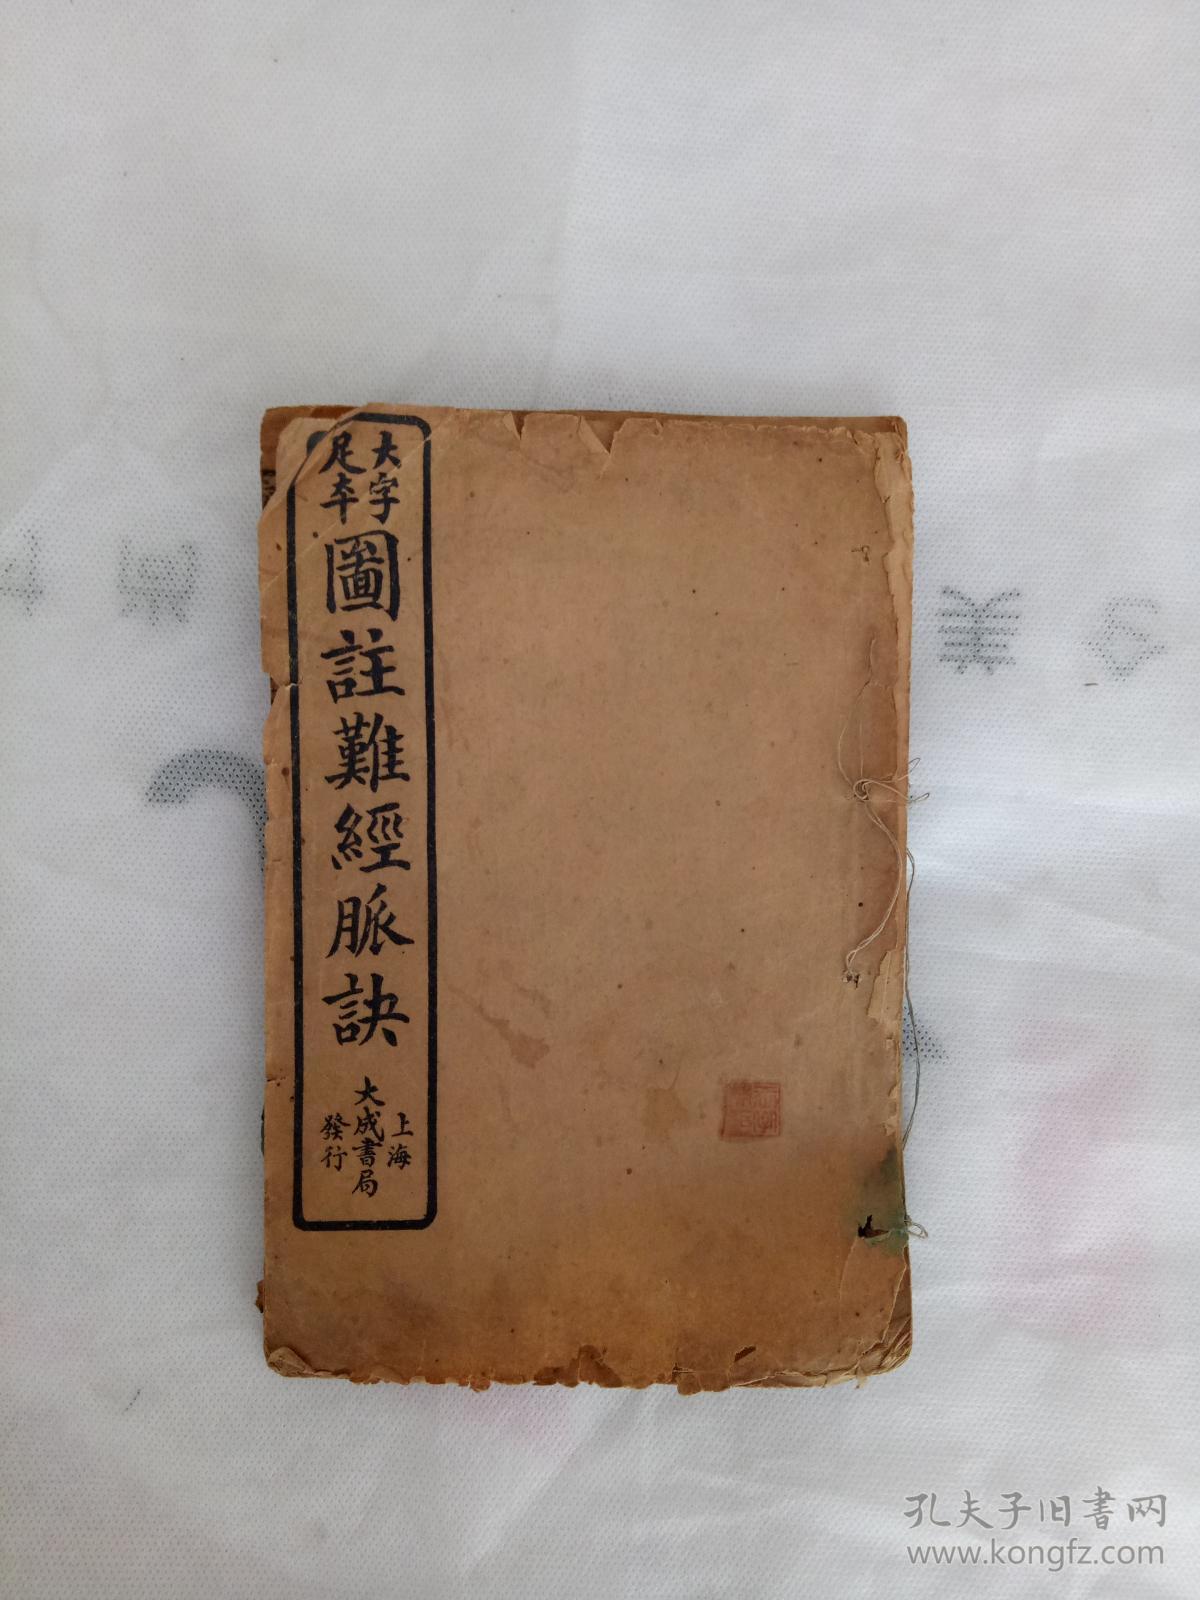 大字
足本
圖註難經脈訣
上海
大成書局
發行
孔夫子旧書网
www.kongfz.com